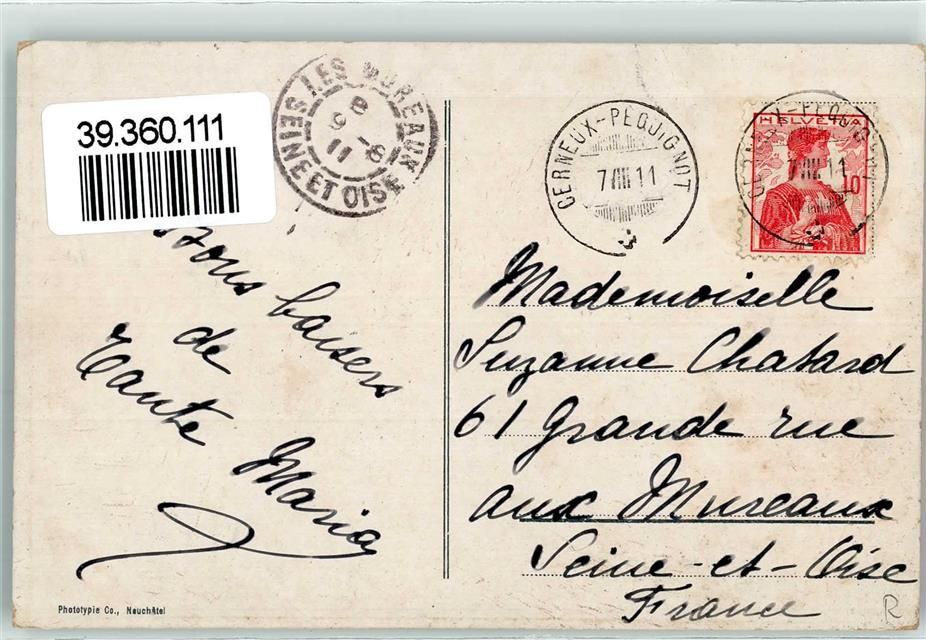 39.360.111
LES MUREAUX
SEINE ET OISE
8
9-8
11
CERNEUX-PÉQUIGNOT
7 VIII 11
HELVETIA
10
CERNEUX-PÉQUIGNOT
7 VIII 11
baisers
de
tante Maria
Mademoiselle
Suzanne Chatard
61 Grande rue
aux Mureaux
Seine-et-Oise
France
Phototypie Co., Neuchâtel
R